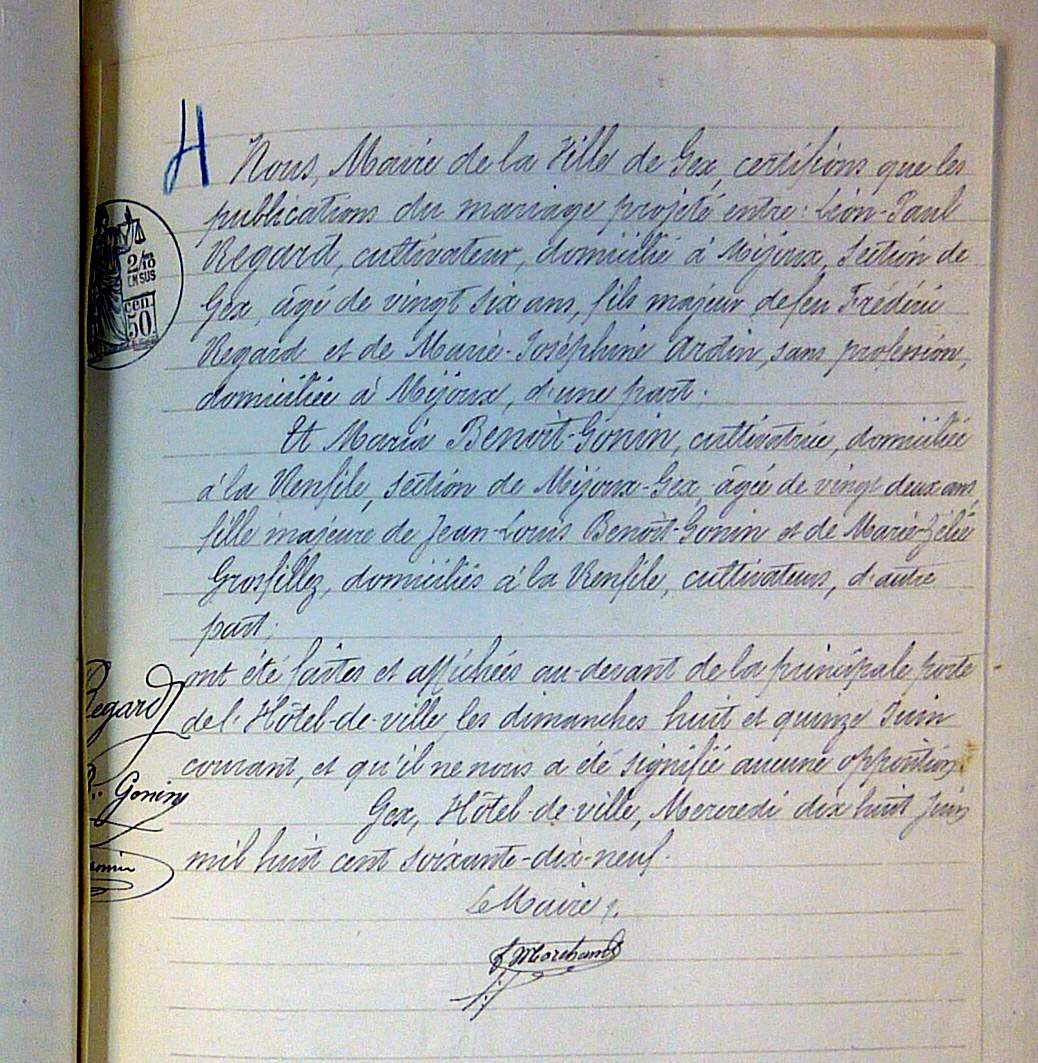 H
Nous, Maire de la Ville de Gex, certifions que les
publications du mariage projeté entre: Léon-Paul
Regard, cultivateur, domicilié à Mijoux, Section de
Gex, âgé de vingt six ans, fils majeur de feu Frédéric
Regard et de Marie-Joséphine Ardin, sans profession,
domiciliée à Mijoux, d'une part;
Et Maria Benoit-Gonin, cultivatrice, domiciliée
à la Venfile, section de Mijoux-Gex, âgée de vingt deux ans,
fille majeure de Jean-Louis Benoit-Gonin et de Marie-Zélie
Grosfillez, domiciliés à la Venfile, cultivateurs, d'autre
part;
ont été faites et affichées au-devant de la principale porte
de l'Hôtel-de-ville, les dimanches huit et quinze Juin
courant, et qu'il ne nous a été signifié aucune opposition.
Gex, Hôtel-de-ville, Mercredi dix huit Juin
mil huit cent soixante-dix-neuf.
Le Maire,
Marchand
2/10
EN SUS
cen.
50
Regard
Gonin